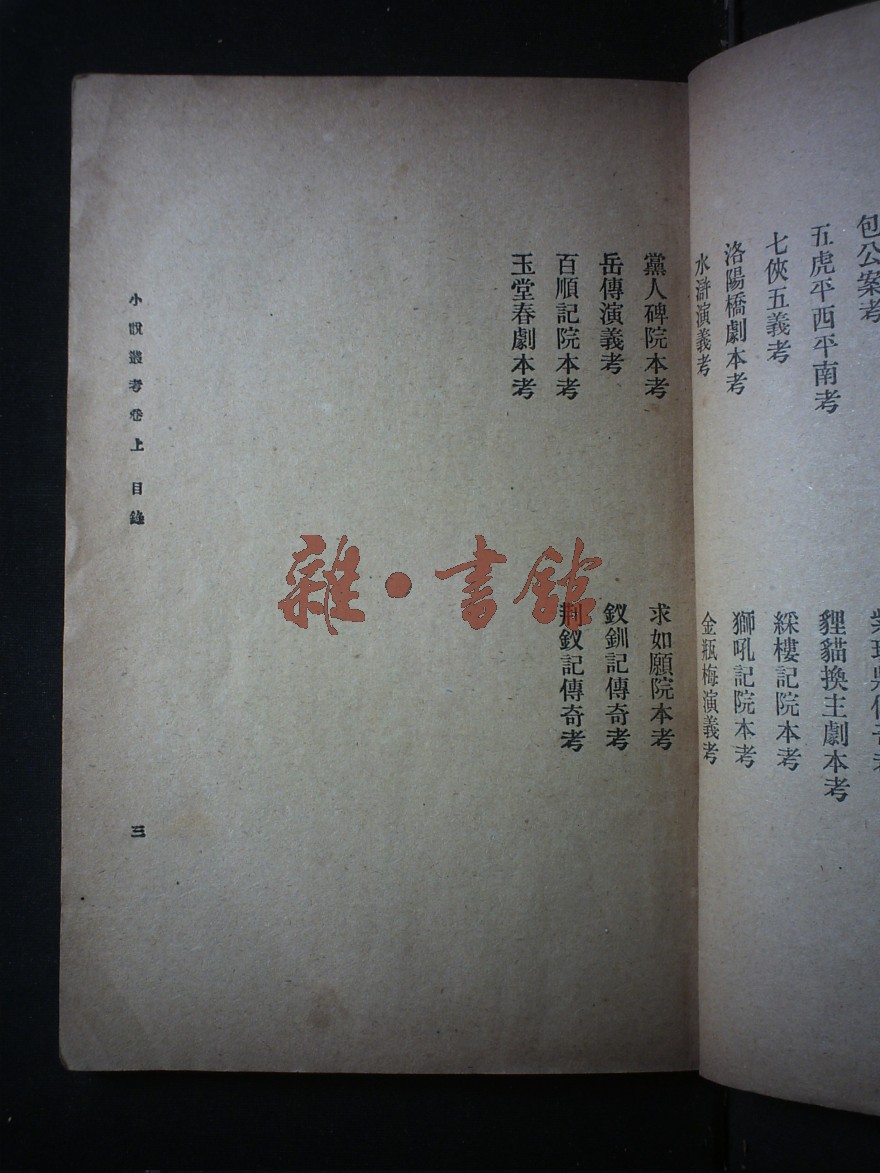 包公案考
五虎平西平南考
七俠五義考
洛陽橋劇本考
水滸演義考
貍貓換主劇本考
綵樓記院本考
獅吼記院本考
金瓶梅演義考
黨人碑院本考
岳傳演義考
百順記院本考
玉堂春劇本考
求如願院本考
釵釧記傳奇考
荆釵記傳奇考
小說叢考卷上 目錄
三
雜·書館